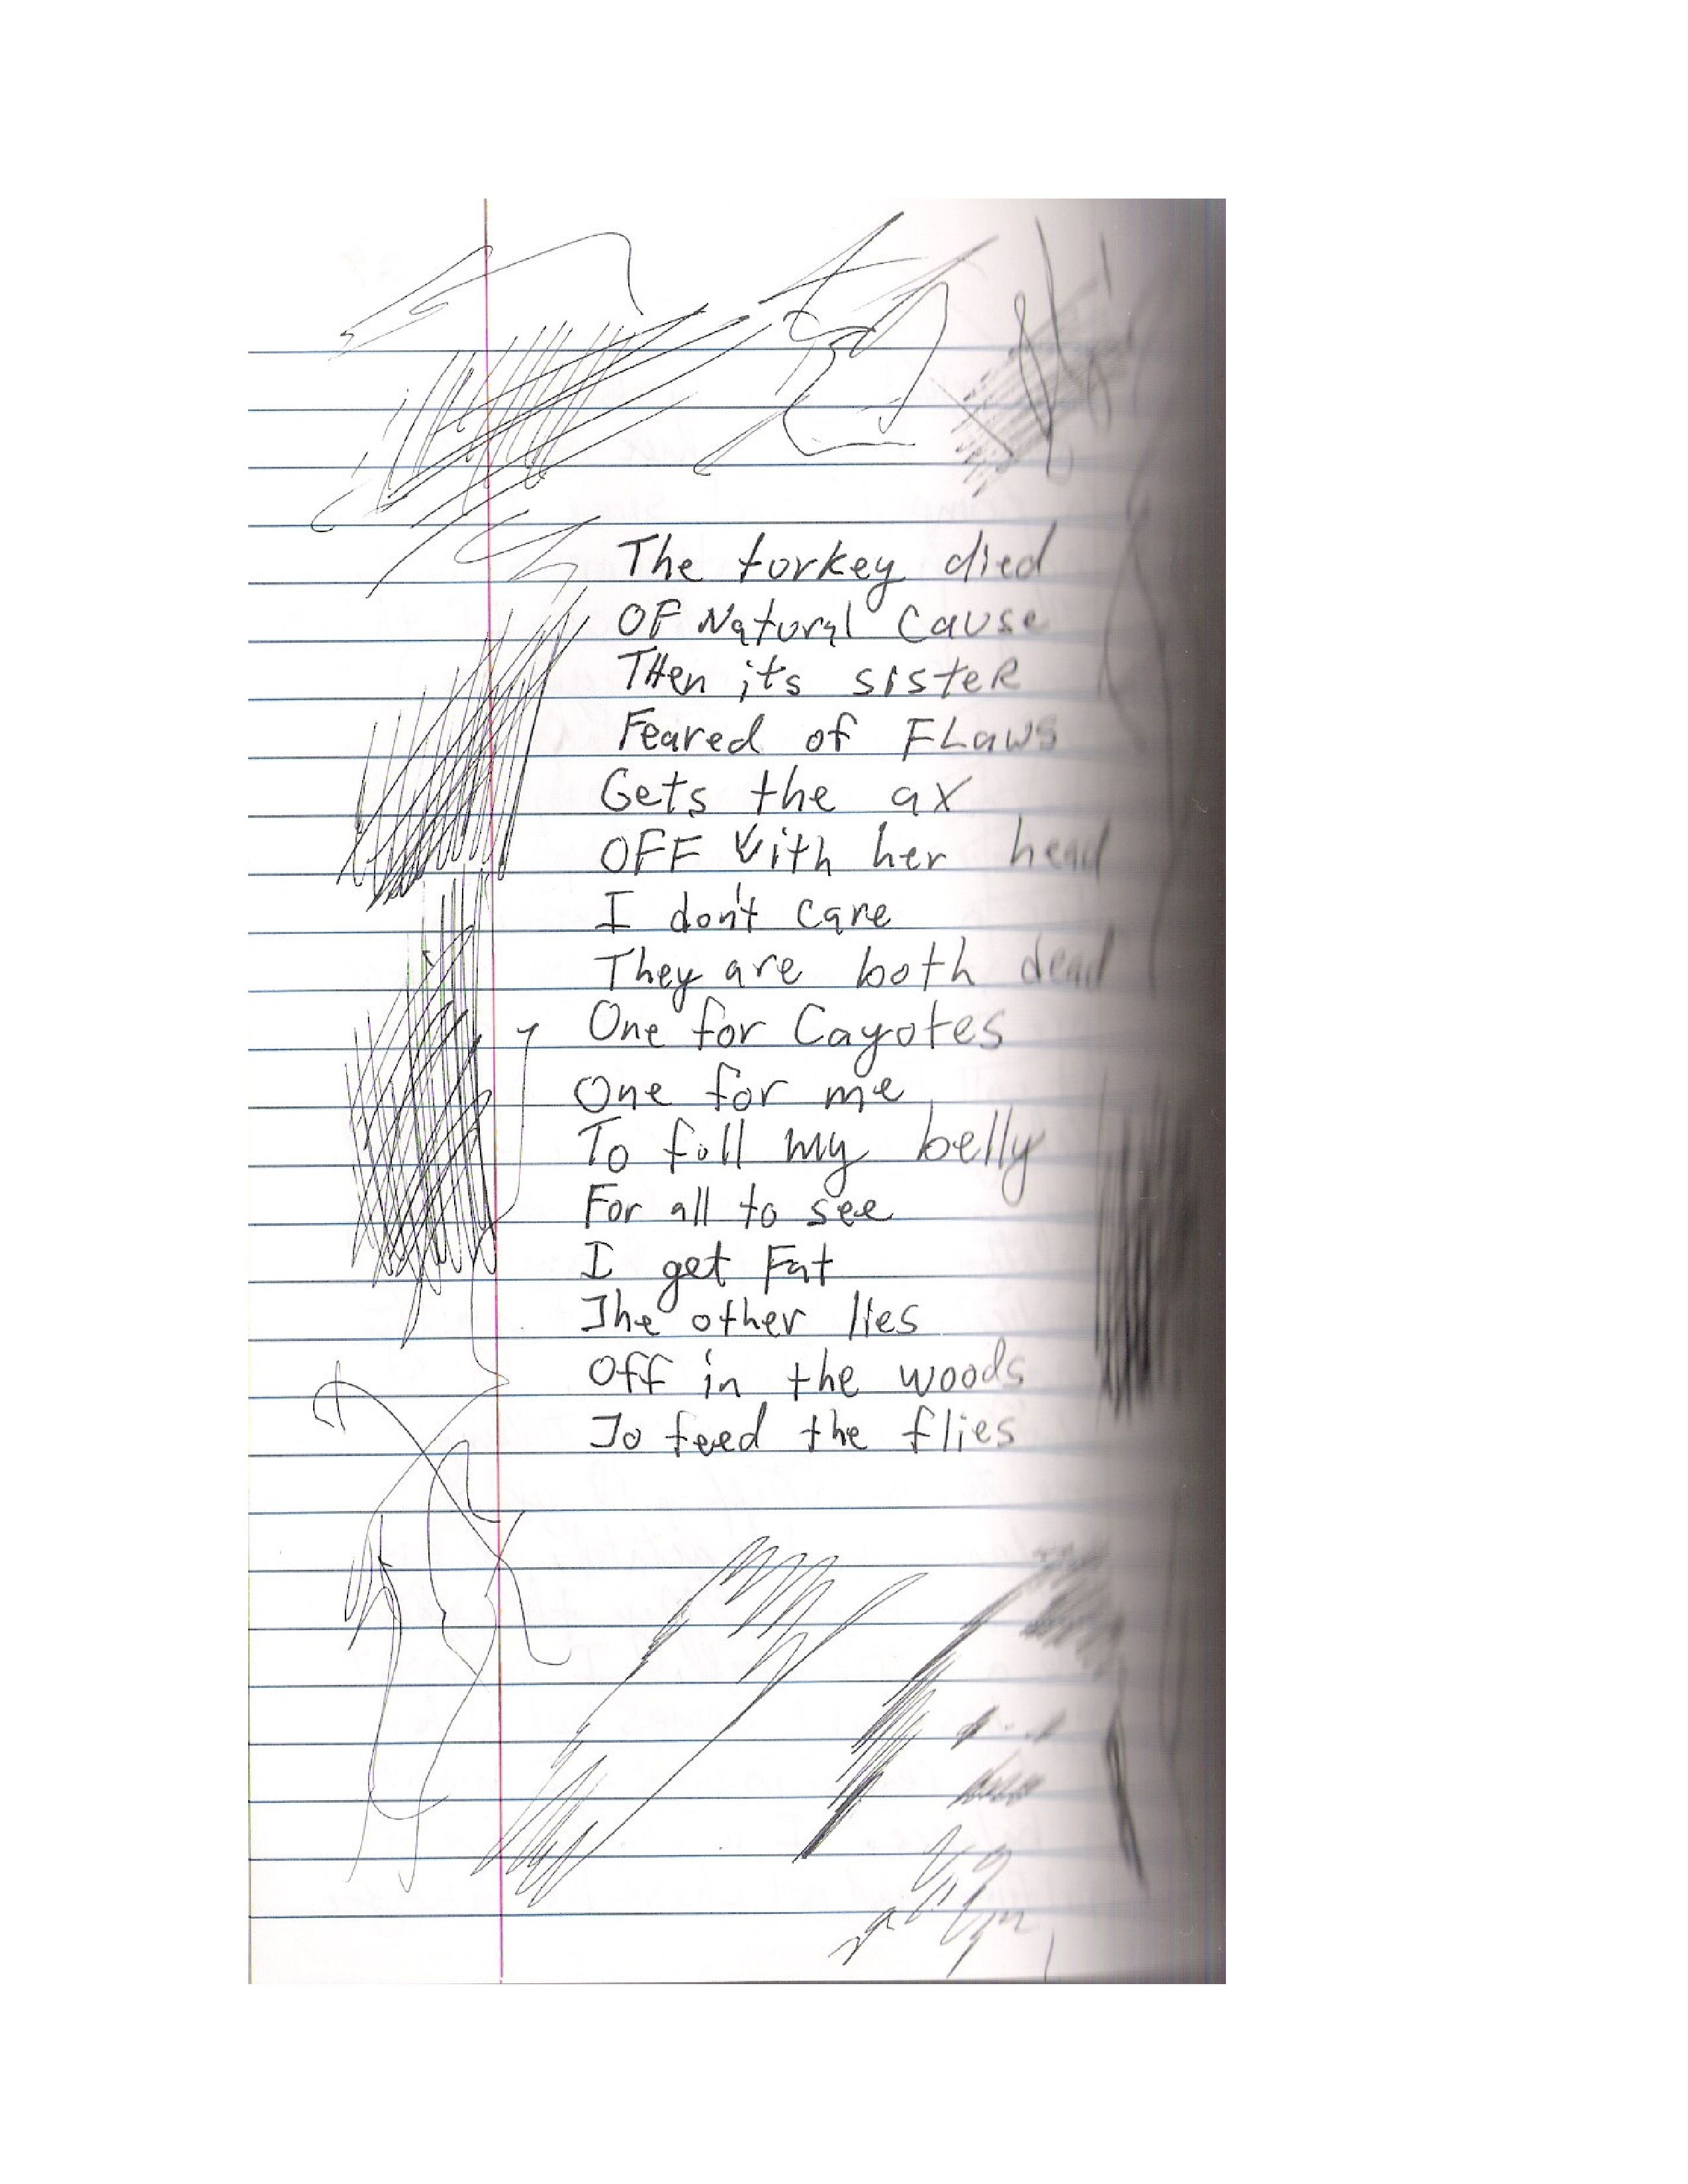 The torkey died
OF Natural Cause
THen its sisteR
Feared of FLaws
Gets the ax
OFF With her head
I don't care
They are both dead
One for Cayotes
One for me
To fill my belly
For all to see
I get Fat
The other lies
Off in the woods
To feed the flies